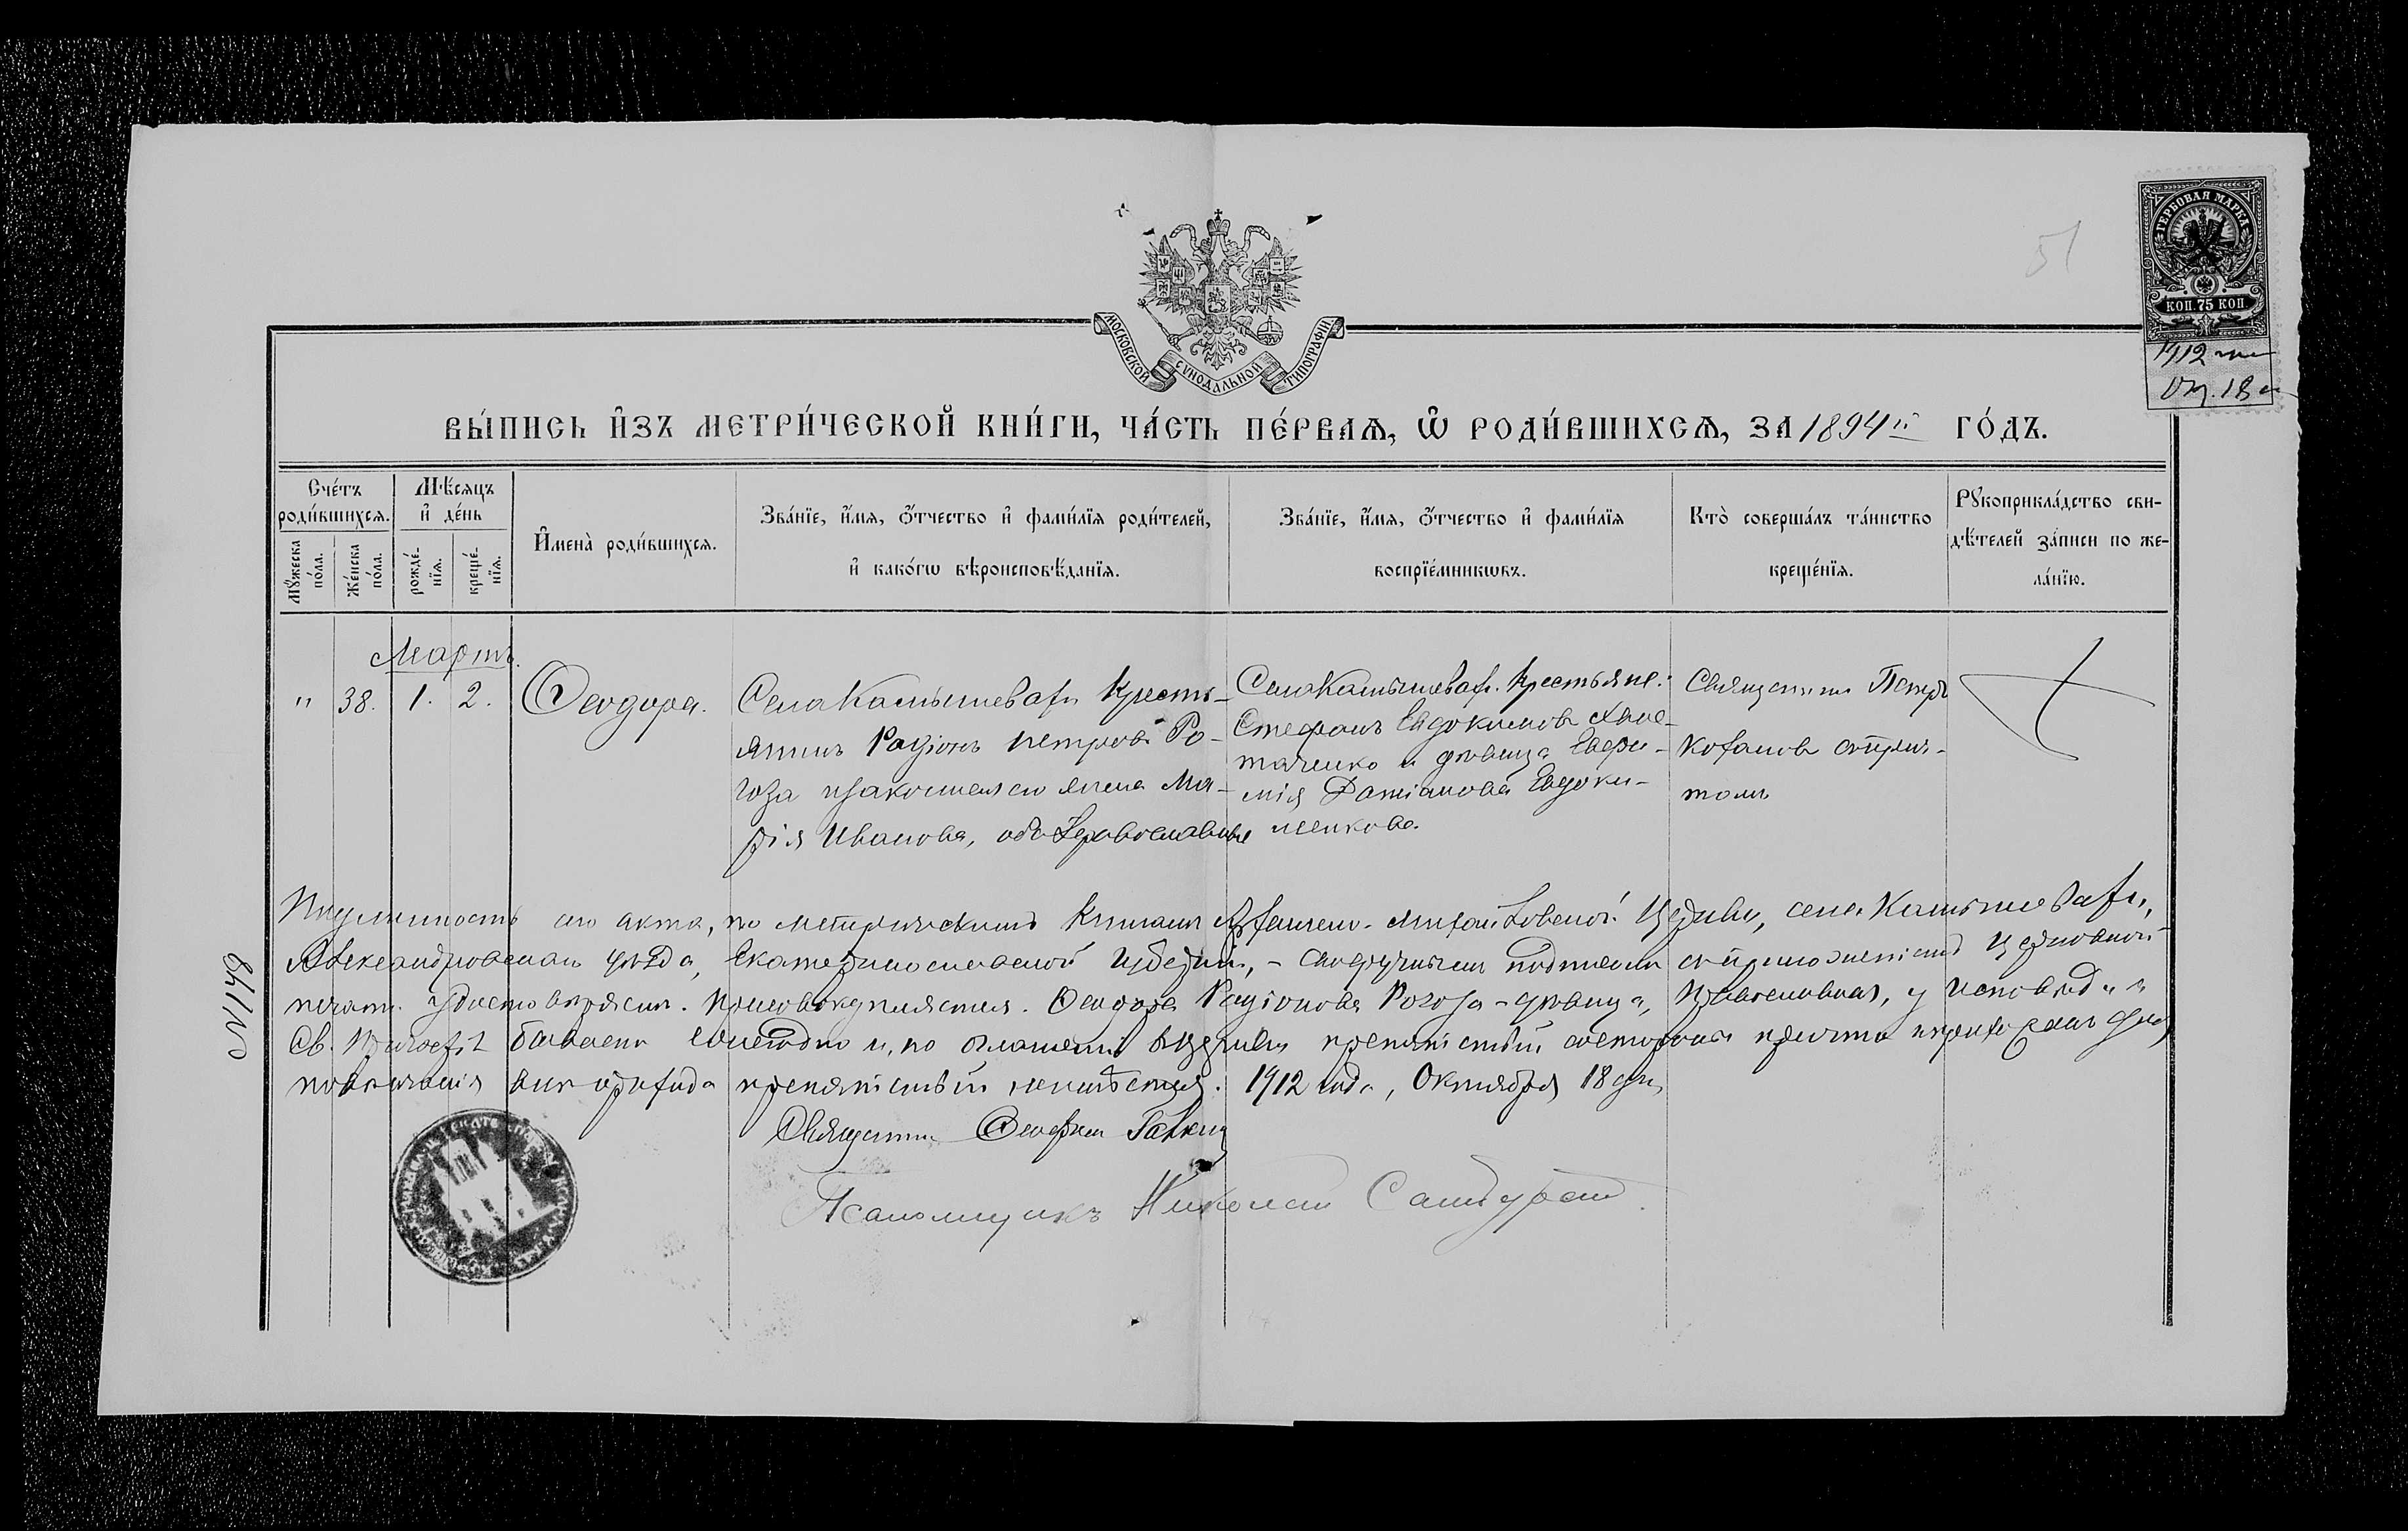 51
ГЕРБОВАЯ МАРКА
КОП. 75 КОП.
1912 г.
Окт. 18
МОСКОВСКОЙ СУНОДАЛЬНОЙ ТИПОГРАФІИ.
ВЫ́ПИСЬ И҆ЗЪ МЕТРИ́ЧЕСКОЙ КНИ́ГИ, ЧА́СТЬ ПЕ́РВАѦ, Ѡ҆ РОДИ́ВШИХСѦ, ЗА 1894й ГО́ДЪ.
Сче́тъ роди́вшихсѧ.
Мꙋ́жеска по́ла.
Же́нска по́ла.
Мѣ́сяцъ и҆ де́нь
рожде́нїѧ.
креще́нїѧ.
И҆мена̀ роди́вшихсѧ.
Зва́нїе, и҆́мѧ, ѻ҆́тчество и҆ фами́лїѧ роди́телей,
и҆ како́гѡ вѣроисповѣ́данїѧ.
Зва́нїе, и҆́мѧ, ѻ҆́тчество и҆ фами́лїѧ
воспрїе́мникѡвъ.
Кто̀ соверша́лъ та́инство
креще́нїѧ.
Рꙋкоприкла́дство сви-
дѣ́телей за́писи по же-
ла́нїю.
Мартъ.
" 38. 1. 2.
Ѳеодора.
Села Камышевахи Кресть-
янинъ Радіонъ Петровъ Ро-
гоза и законная его жена Ма-
рія Иванова, оба Православные
Села Камышевахи Крестьяне:
Стефанъ Евдокимовъ
и девица Евфи-
мія Даміанова Евдоки-
менкова.
Священникъ Петръ
Кохановъ съ прич-
томъ
Подлинность сего акта, по метрическимъ книгамъ Архангело-Михайловской Церкви, села Камышевахи,
Александровскаго уѣзда, Екатеринославской Губерніи, – своеручнымъ подписомъ съ приложеніемъ Церковной
печати удостовѣряемъ. Ѳеодора Радіонова Рогоза – девица, Православная, у Исповѣди и
Св. Причастія бываетъ ежегодно и, по оглашеніи въ церкви препятствій
повѣнчанія препятствій неимѣется. 1912 года, Октября 18 дня,
Священникъ
Псаломщикъ Николай
№ 1148